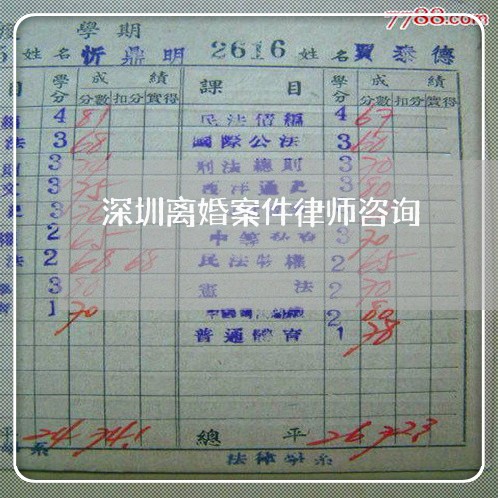 7788.com
學期
姓名 忻鼎明 2616 姓名 賈泰德
目 學分 成績 課目 學分 成績
分數 扣分 實得 分數 扣分 實得
4 81 民法債編 4 67
法 3 68 國際公法 3 60
3 刑法總則 3 70
3 75 西洋通史 3 80
3
深圳离婚案件律师咨询
2 65 3 70
法 2 68 68 民法物權 2 65
3 80 憲法 2 70
1 70 2 80
普通體育 1 78
平 24 74.1 總平 26 72.3
系 法律學系